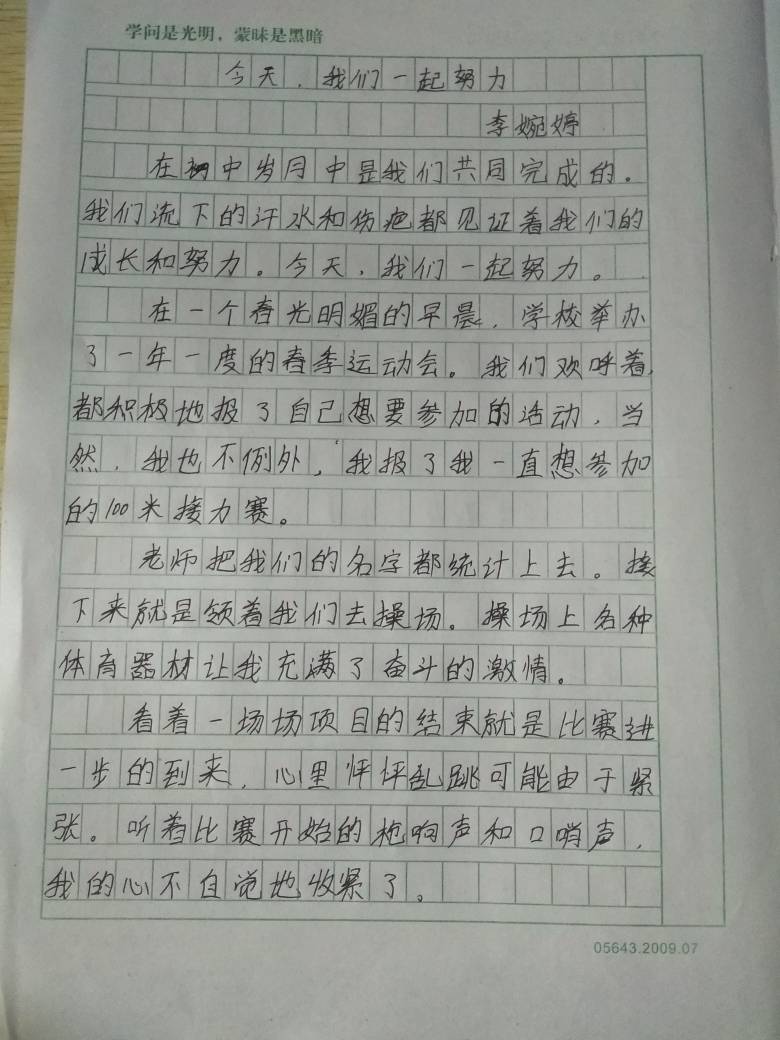 学问是光明，蒙昧是黑暗
今天，我们一起努力
李婉婷
在初中岁月中是我们共同完成的。
我们流下的汗水和伤疤都见证着我们的
成长和努力。今天，我们一起努力。
在一个春光明媚的早晨，学校举办
了一年一度的春季运动会。我们欢呼着，
都积极地报了自己想要参加的活动，当
然，我也不例外，我报了我一直想参加
的100米接力赛。
老师把我们的名字都统计上去。接
下来就是领着我们去操场。操场上各种
体育器材让我充满了奋斗的激情。
看着一场场项目的结束就是比赛进
一步的到来，心里怦怦乱跳可能由于紧
张。听着比赛开始的枪响声和口哨声，
我的心不自觉地收紧了。
05643.2009.07